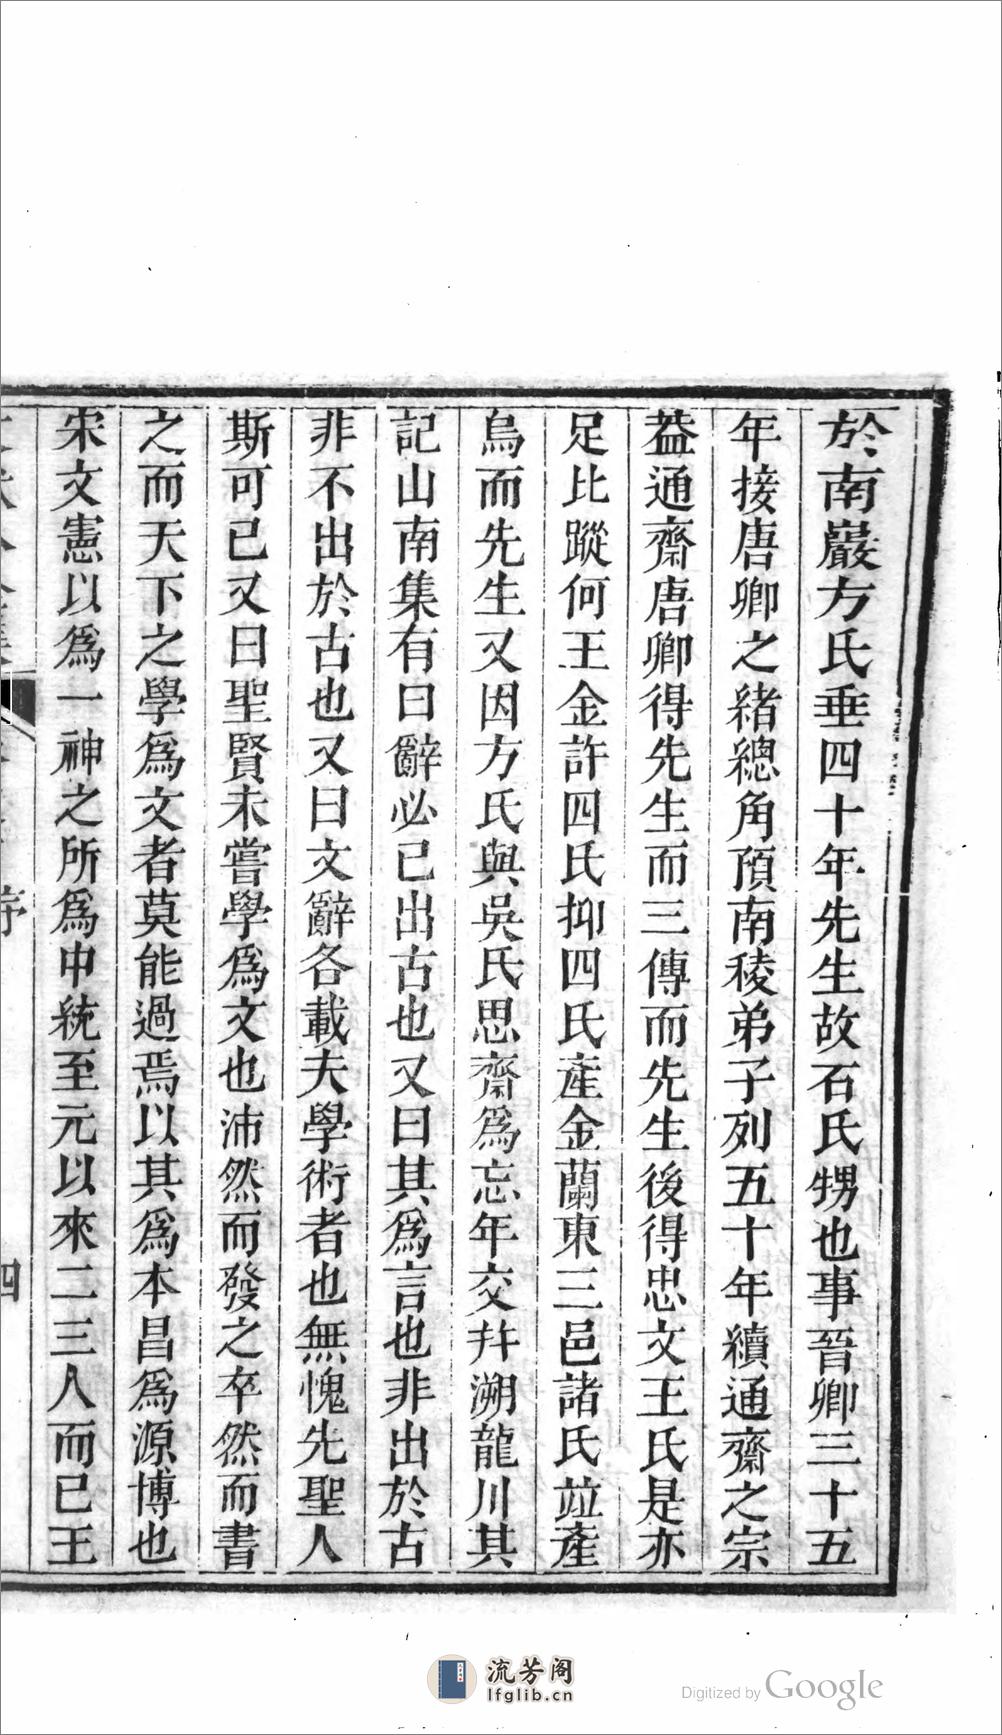 於南巖方氏垂四十年先生故石氏甥也事晉卿三十五
年接唐卿之緒總角預南稜弟子列五十年續通齋之宗
葢通齋唐卿得先生而三傳而先生後得忠文王氏是亦
足比蹤何王金許四氏抑四氏產金蘭東三邑諸氏竝產
烏而先生又因方氏與吳氏思齋爲忘年交幷溯龍川其
記山南集有曰辭必己出古也又曰其爲言也非出於古
非不出於古也又曰文辭各載夫學術者也無愧先聖人
斯可已又曰聖賢未嘗學爲文也沛然而發之卒然而書
之而天下之學爲文者莫能過焉以其爲本昌爲源博也
宋文憲以爲一神之所爲中統至元以來二三人而已王
序
四
流芳阁
lfglib.cn
Digitized by Google